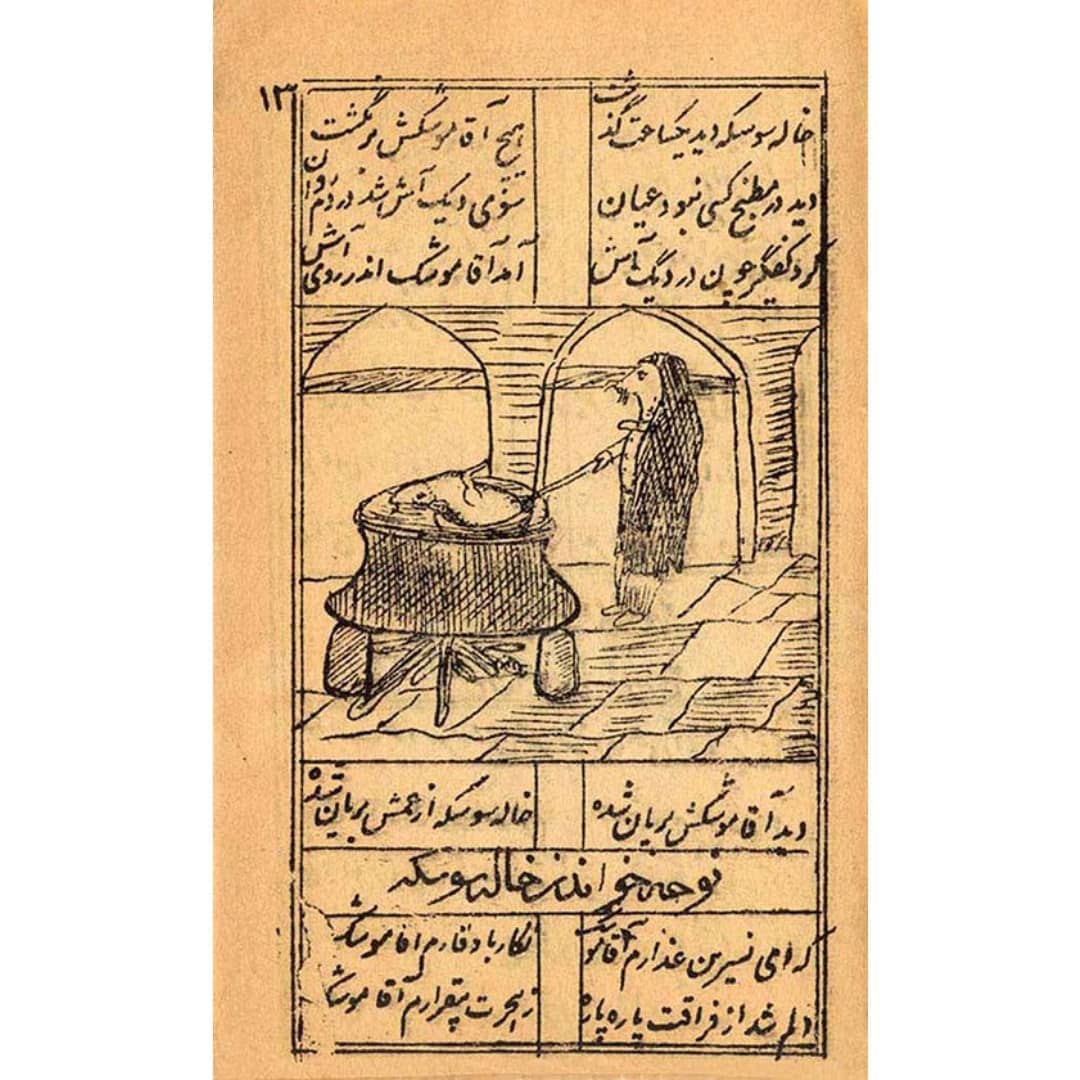 ۱۳
خاله سوسکه دید یکساعت گذشت هیچ آقا موشکش برنگشت
دید در مطبخ کسی نبود عیان سوی دیک آش شد در دم روان
کرد کفگیر چون در دیگ آش آمد آقا موشک اندر روی آش
دید آقا موشکش بریان شده خاله سوسکه از غمش بریان شده
نوحه خواندن خاله سوسکه
که ای نسیرین عذارم آقا موشک نکار با وقارم اقا موشک
دلم شد از فراقت پاره پاره ز هجرت بیقرارم آقا موشک